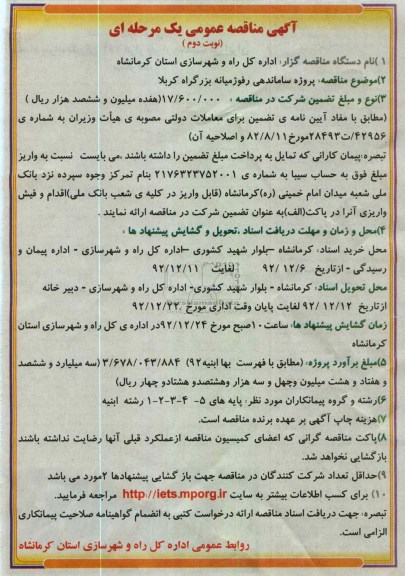 آگهی مناقصه عمومی یک مرحله ای
(نوبت دوم )
۱ )نام دستگاه مناقصه گزار: اداره کل راه و شهرسازی استان کرمانشاه
۲)موضوع مناقصه: پروژه ساماندهی رفوژمیانه بزرگراه کربلا
۳)نوع و مبلغ تضمین شرکت در مناقصه : ۱۷/۶۰۰/۰۰۰(هفده میلیون و ششصد هزار ریال )
(مطابق با مفاد آیین نامه ی تضمین برای معاملات دولتی مصوبه ی هیأت وزیران به شماره ی
۴۲۹۵۶/ت۲۸۴۹۳مورخ۸۲/۸/۱۱ و اصلاحیه آن)
تبصره:پیمان کارانی که تمایل به پرداخت مبلغ تضمین را داشته باشند ،می بایست نسبت به واریز
مبلغ فوق به حساب سیبا به شماره ی ۲۱۷۶۳۲۳۷۵۲۰۰۱ بنام تمرکز وجوه سپرده نزد بانک
ملی شعبه میدان امام خمینی (ره)کرمانشاه (قابل واریز در کلیه ی شعب بانک ملی)اقدام و فیش
واریزی آنرا در پاکت(الف)به عنوان تضمین شرکت در مناقصه ارائه نمایند .
۴)محل و زمان و مهلت دریافت اسناد ،تحویل و گشایش پیشنهاد ها :
محل خرید اسناد: کرمانشاه –بلوار شهید کشوری –اداره کل راه و شهرسازی - اداره پیمان و
رسیدگی - ازتاریخ ۹۲/۱۲/۶ لغایت ۹۲/۱۲/۱۱
محل تحویل اسناد: کرمانشاه - بلوار شهید کشوری- اداره کل راه و شهرسازی - دبیر خانه
ازتاریخ ۹۲/۱۲/۱۲ لغایت پایان وقت اداری مورخ ۹۲/۱۲/۲۲.
زمان گشایش پیشنهاد ها: ساعت۱۰صبح مورخ ۹۲/۱۲/۲۴در اداره ی کل راه و شهرسازی استان
کرمانشاه
۵)مبلغ برآورد پروژه: (مطابق با فهرست بها ابنیه۹۲) ۳/۶۷۸/۰۴۳/۸۸۴ (سه میلیارد و ششصد
و هفتاد و هشت میلیون وچهل و سه هزار وهشتصدو هشتادو چهار ریال)
۶)رشته و گروه پیمانکاران مورد نظر: پایه های ۵- ۴-۳-۲-۱ رشته ابنیه
۷)هزینه چاپ آگهی بر عهده برنده مناقصه است.
۸)پاکت مناقصه گرانی که اعضای کمیسیون مناقصه ازعملکرد قبلی آنها رضایت نداشته باشند
بازگشایی نخواهد شد.
۹)حداقل تعداد شرکت کنندگان در مناقصه جهت باز گشایی پیشنهادها ۲مورد می باشد
۱۰) برای کسب اطلاعات بیشتر به سایت http://iets.mporg.ir مراجعه فرمایید.
تبصره: جهت دریافت اسناد مناقصه ارائه درخواست کتبی به انضمام گواهینامه صلاحیت پیمانکاری
الزامی است.
روابط عمومی اداره کل راه و شهرسازی استان کرمانشاه